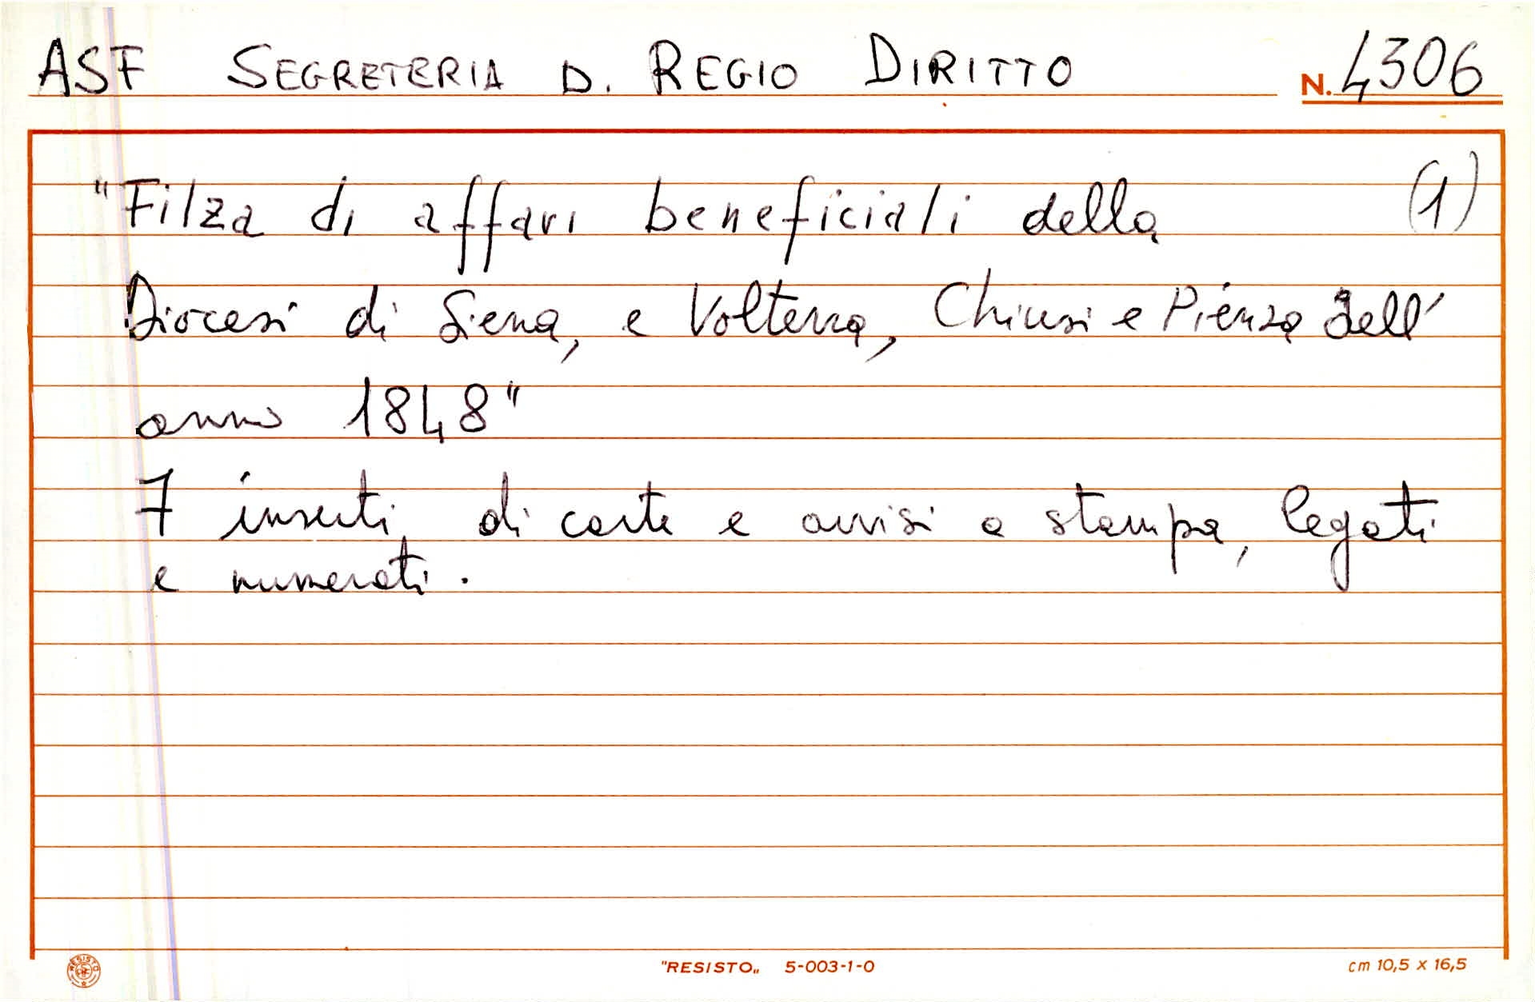 ASF SEGRETERIA D. REGIO DIRITTO N. 4306
"Filza di affari beneficiali della (1)
Diocesi di Siena, e Volterra, Chiusi e Pienza dell'
anno 1848"
7 inserti, di carte e avvisi a stampa, legati
e numerati.
RESISTO "RESISTO„ 5-003-1-0 cm 10,5 x 16,5